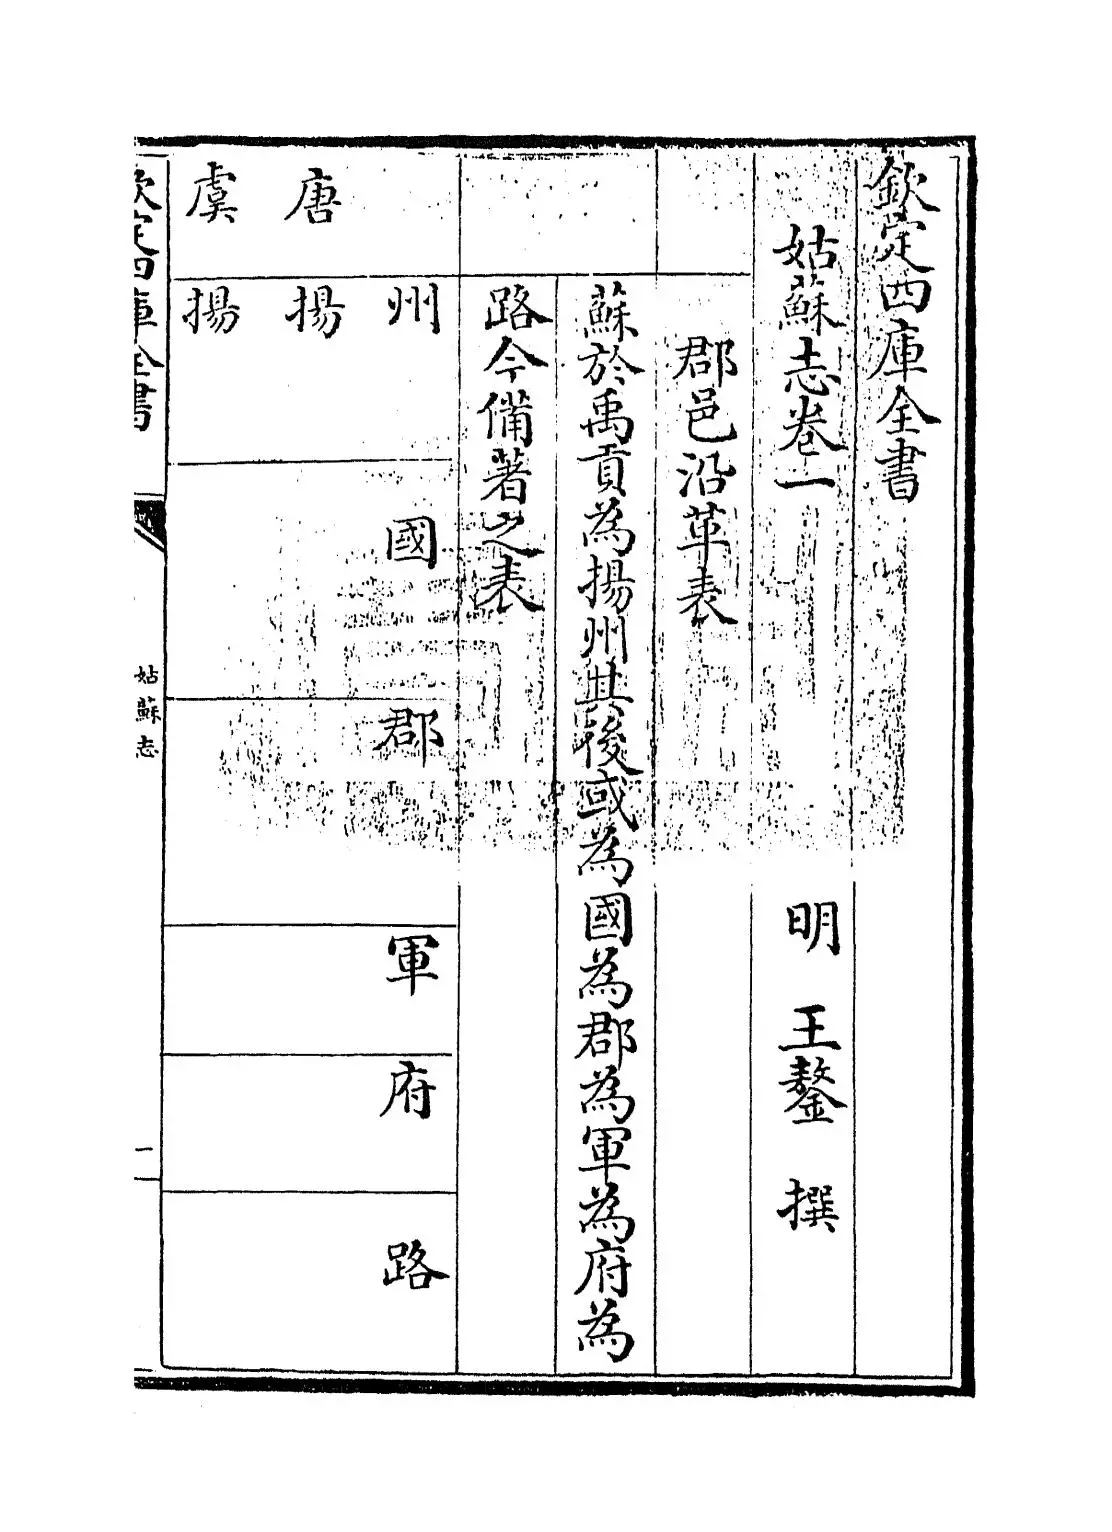 欽定四庫全書
姑蘇志卷一
明 王鏊 撰
郡邑沿革表
蘇於禹貢為揚州其後或為國為郡為軍為府為
路今備著之表
州 國 郡 軍 府 路
唐 揚
虞 揚
欽定四庫全書
姑蘇志
一